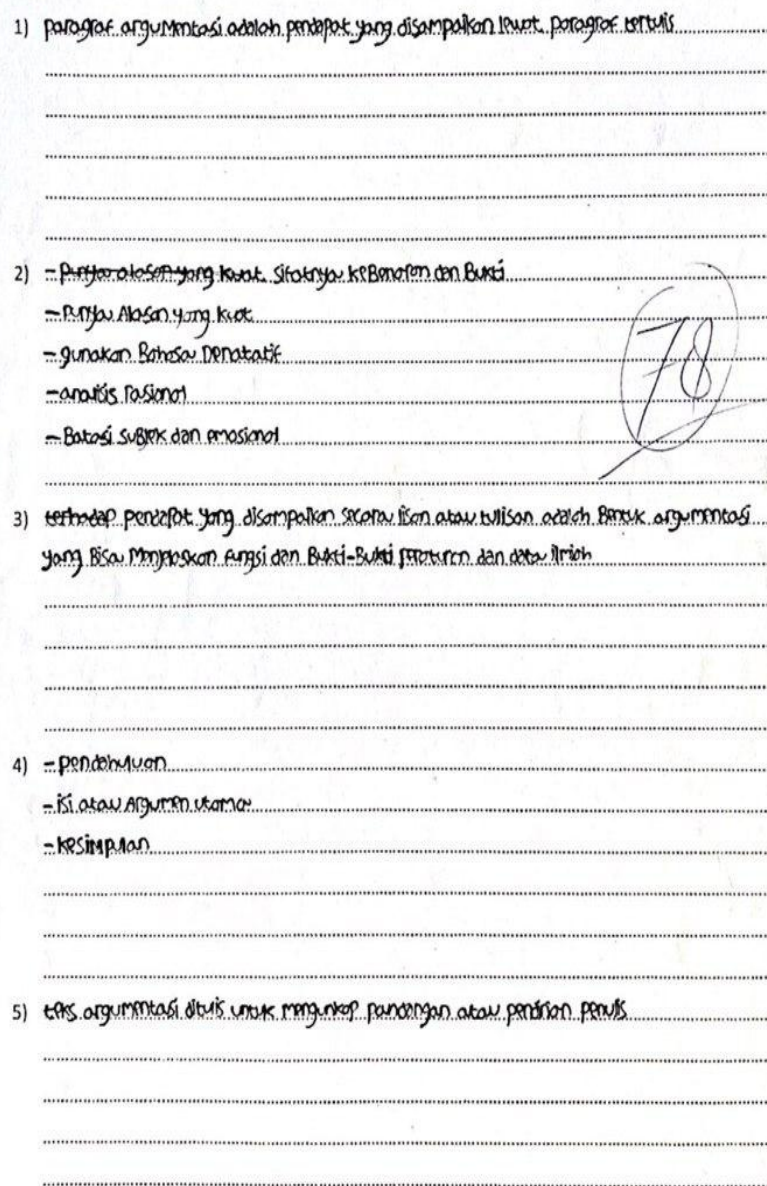 1) paragraf argumentasi adalah pendapat yang disampaikan lewat paragraf tertulis
2) - Punya alasan yang kuat sifatnya keBenaran dan Bukti
- Punya Alasan yang kuat
- gunakan Bahasa Denatatif
- analisis rasional
- Batasi suBjek dan emosional
78
3) terhadap pendapat yang disampaikan secara lisan atau tulisan adalah Bentuk argumentasi
yang Bisa Menjelaskan fungsi dan Bukti-Bukti dan data ilmiah
4) - pendahuluan
- isi atau Argumen utama
- kesimpulan
5) teks argumentasi ditulis untuk mengunkap pandangan atau pendirian penulis